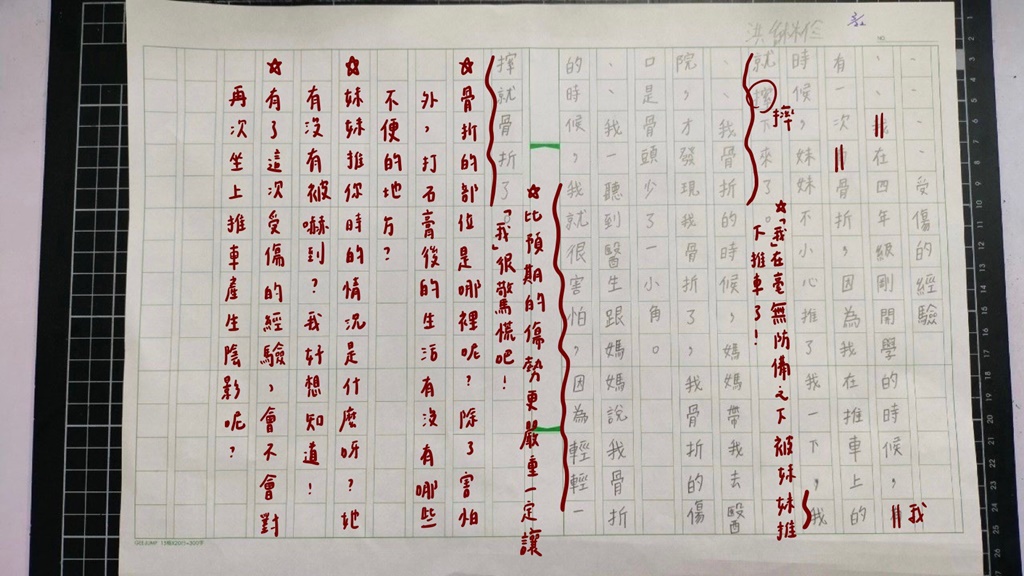 受傷的經驗
我在四年級剛開學的時候，我
有一次骨折，因為我在推車上的
時候，妹妹不小心推了我一下，我
就摔下來了。
摔
☆「我」在毫無防備之下被妹妹推
下推車了！
我骨折的時候，媽媽帶我去醫
院，才發現我骨折了，我骨折的傷
口是骨頭少了一小角。
我一聽到醫生跟媽媽說我骨折
的時候，我就很害怕，因為輕輕一
摔就骨折了。
☆比預期的傷勢更嚴重一定讓
「我」很驚慌吧！
☆骨折的部位是哪裡呢？除了害怕
外，打石膏後的生活有沒有哪些
不便的地方？
☆妹妹推你時的情況是什麼呀？她
有沒有被嚇到？我好想知道！
☆有了這次受傷的經驗，會不會對
再次坐上推車產生陰影呢？